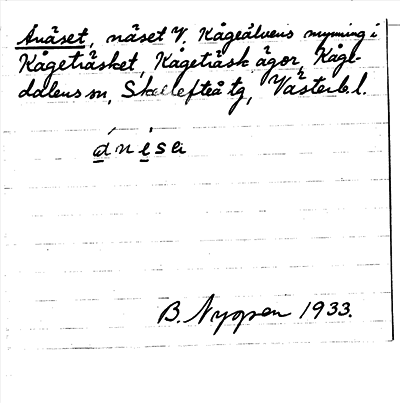 Ånäset, näset V. Kågeälvens mynning i
Kågeträsket, Kågeträsk ägor, Kåge-
dalens sn, Skellefteå tg, Västerb. l.
B. Nygren 1933.